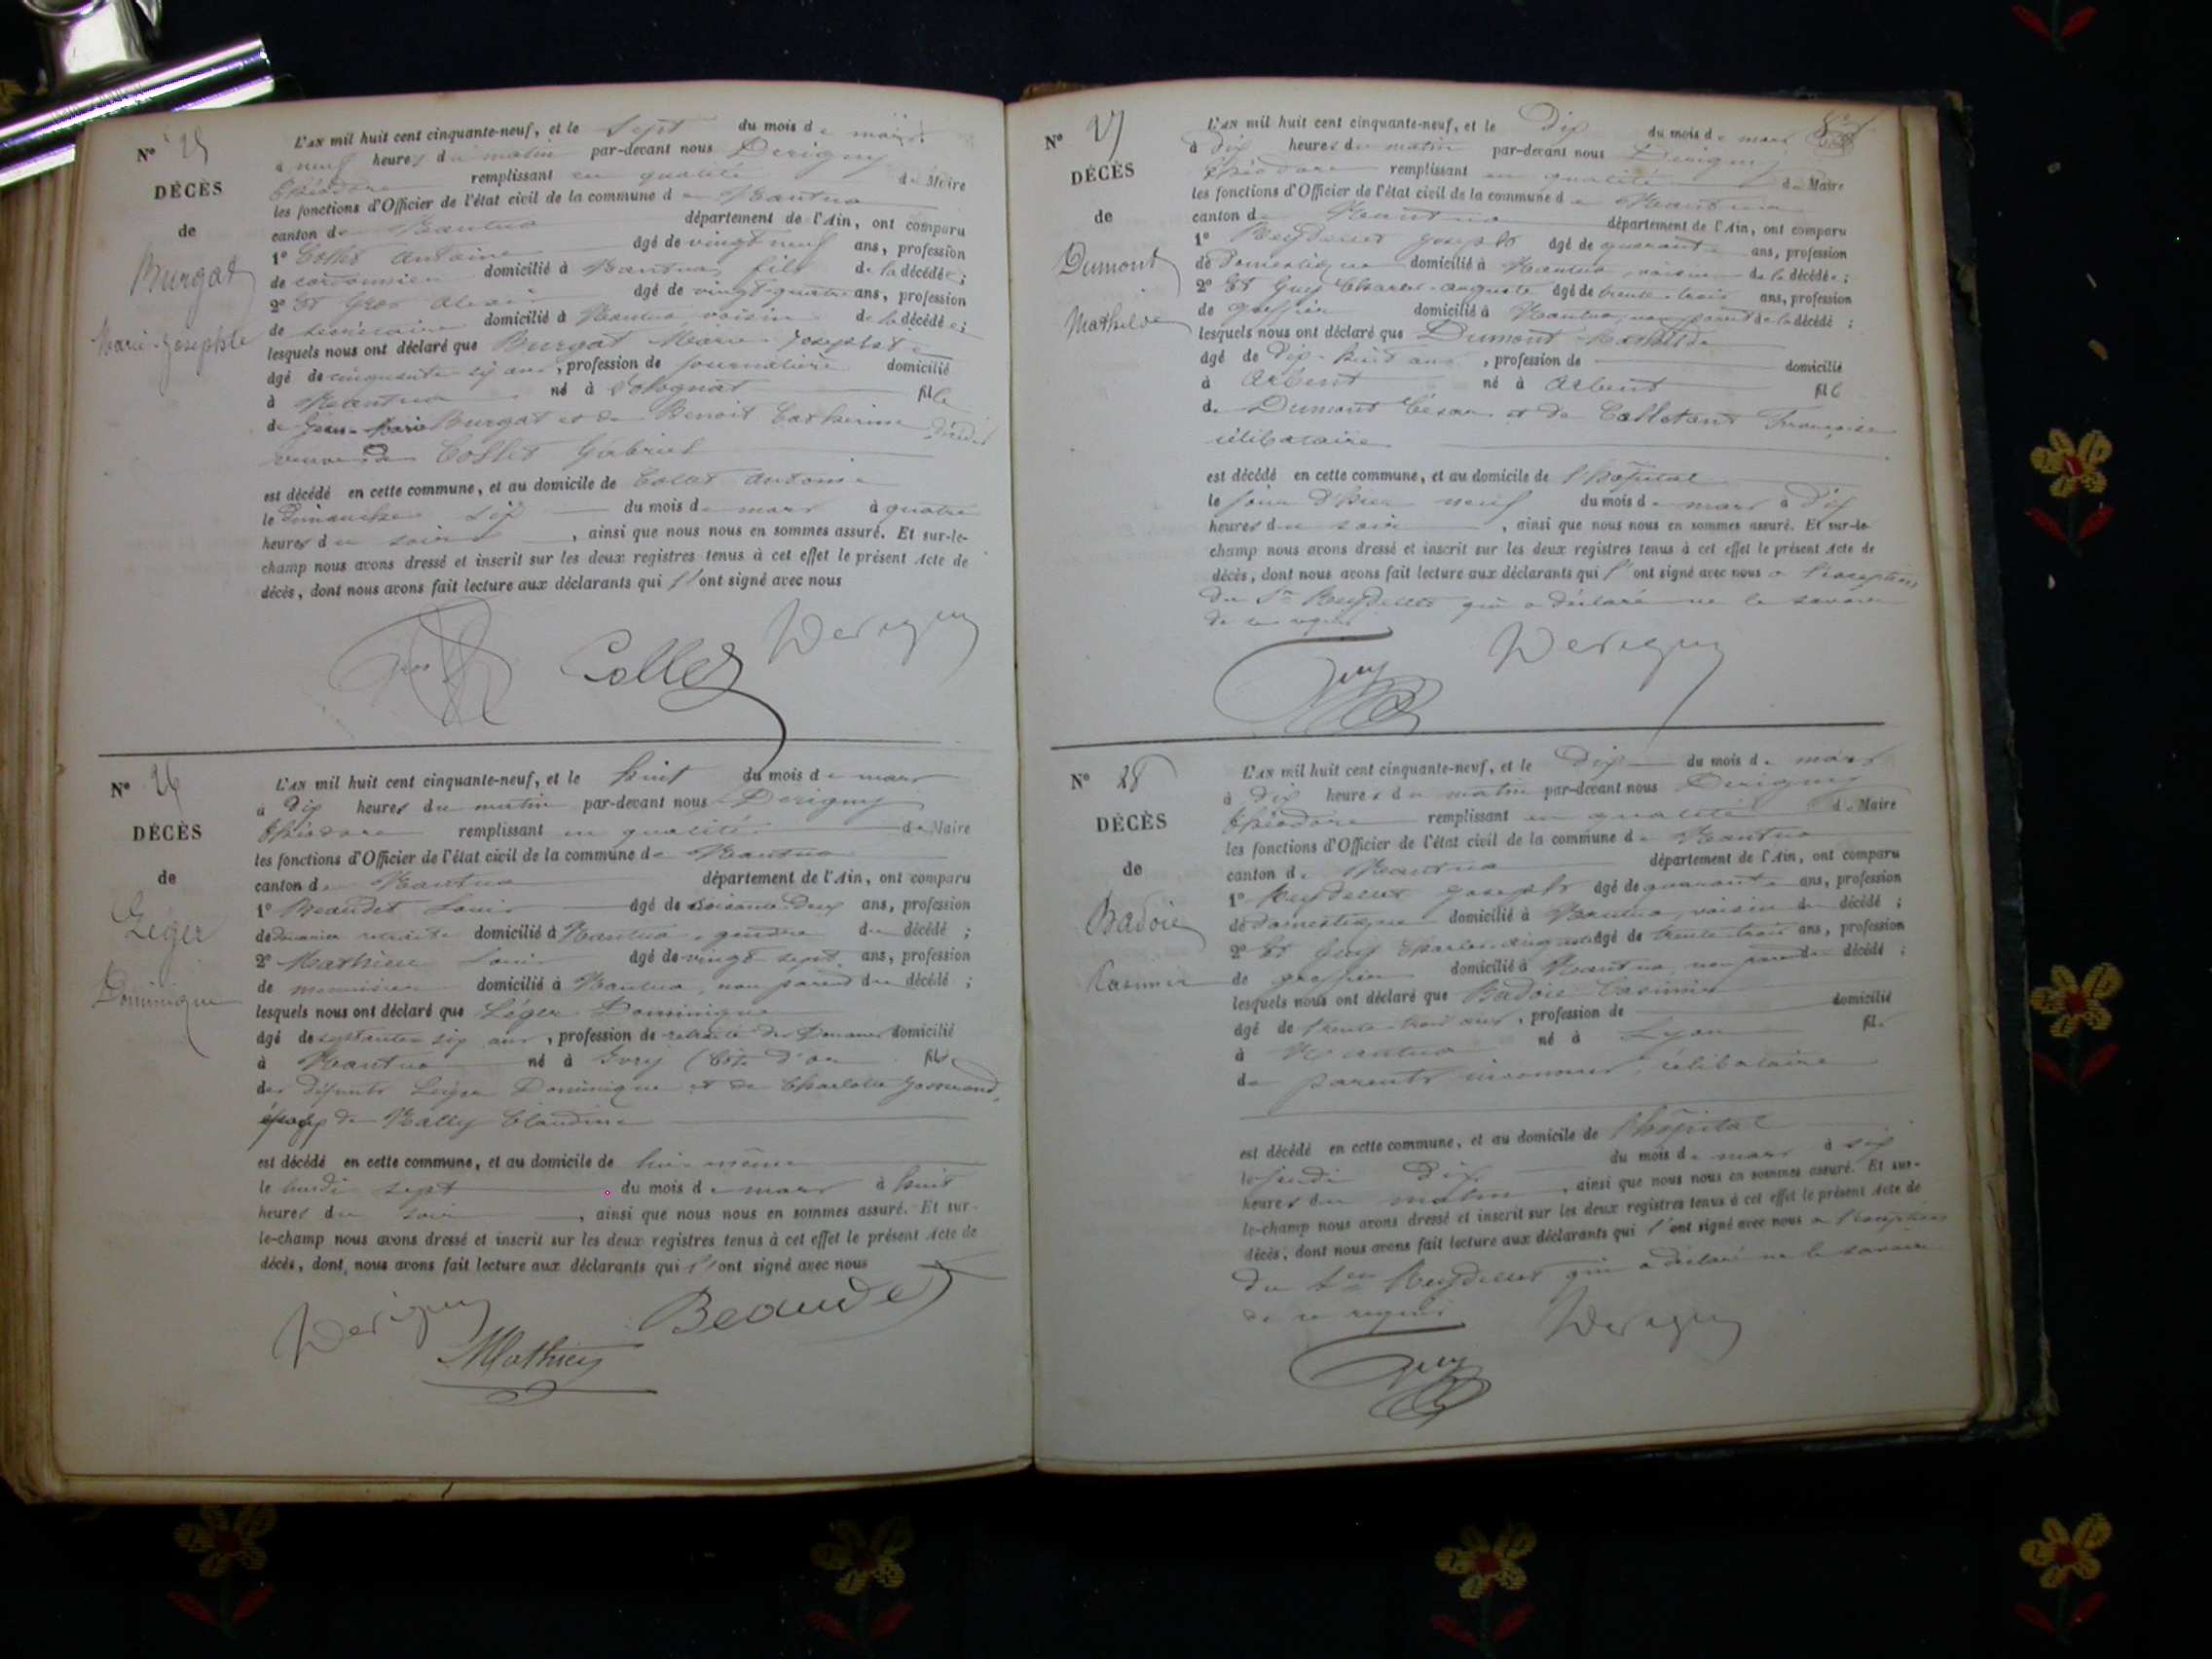 N° 25
DÉCÈS
de
Burgat
Marie-Josephte
L'AN mil huit cent cinquante-neuf, et le sept du mois de mars
à neuf heures du matin par-devant nous Derigny
Théodore remplissant en qualité de Maire
les fonctions d'Officier de l'état civil de la commune de Nantua
canton de Nantua département de l'Ain, ont comparu
1° Collet Antoine âgé de vingt neuf ans, profession
de cordonnier domicilié à Nantua, fils de la décédée;
2° Et Gros Alexis âgé de vingt-quatre ans, profession
de secrétaire domicilié à Nantua voisin de la décédée;
lesquels nous ont déclaré que Burgat Marie Josephte
âgé de cinquante six ans, profession de journalière domicilié
à Nantua né à Volognat fille
de Jean-Marie Burgat et de Benoit Catherine décédés
veuve de Collet Gabriel
est décédé en cette commune, et au domicile de Collet Antoine
le Dimanche six du mois de mars à quatre
heures du soir, ainsi que nous nous en sommes assuré. Et sur-le-
champ nous avons dressé et inscrit sur les deux registres tenus à cet effet le présent Acte de
décès, dont nous avons fait lecture aux déclarants qui l'ont signé avec nous
Gros Collet Derigny
N° 26
DÉCÈS
de
Léger
Dominique
L'AN mil huit cent cinquante-neuf, et le huit du mois de mars
à dix heures du matin par-devant nous Derigny
Théodore remplissant en qualité de Maire
les fonctions d'Officier de l'état civil de la commune de Nantua
canton de Nantua département de l'Ain, ont comparu
1° Beaudet Louis âgé de soixante-deux ans, profession
de douanier retraité domicilié à Nantua, gendre du décédé;
2° Mathieu Louis âgé de vingt sept ans, profession
de menuisier domicilié à Nantua, non parent du décédé;
lesquels nous ont déclaré que Léger Dominique
âgé de septante six ans, profession de retraité des Douanes domicilié
à Nantua né à Ivry (Côte d'or fils
des défunts Léger Dominique et de Charlotte Josserand,
époux de Nally Claudine
est décédé en cette commune, et au domicile de lui-même
le lundi sept du mois de mars à huit
heures du soir, ainsi que nous nous en sommes assuré. Et sur-
le-champ nous avons dressé et inscrit sur les deux registres tenus à cet effet le présent Acte de
décès, dont nous avons fait lecture aux déclarants qui l'ont signé avec nous
Derigny Beaudet
Mathieu
N° 27
DÉCÈS
de
Dumont
Mathilde
L'AN mil huit cent cinquante-neuf, et le Dix du mois de mars
à dix heures du matin par-devant nous Derigny
Théodore remplissant en qualité de Maire
les fonctions d'Officier de l'état civil de la commune de Nantua
canton de Nantua département de l'Ain, ont comparu
1° Reydellet Joseph âgé de quarante ans, profession
de Domestique domicilié à Nantua, voisin de la décédée;
2° Et Guy Charles-auguste âgé de trente-trois ans, profession
de greffier domicilié à Nantua, non parent de la décédé;
lesquels nous ont déclaré que Dumont Mathilde
âgé de dix-huit ans, profession de domicilié
à Arbent né à Arbent fille
de Dumont César et de Colletant Françoise
célibataire
est décédé en cette commune, et au domicile de l'hôpital
le jour d'hier neuf du mois de mars à dix
heures du soir, ainsi que nous nous en sommes assuré. Et sur-le-
champ nous avons dressé et inscrit sur les deux registres tenus à cet effet le présent Acte de
décès, dont nous avons fait lecture aux déclarants qui l'ont signé avec nous à l'exception
du Sr Reydellet qui a déclaré ne le savoir
de ce requis
Guy Derigny
N° 28
DÉCÈS
de
Badoie
Casimir
L'AN mil huit cent cinquante-neuf, et le Dix du mois de mars
à dix heures du matin par-devant nous Derigny
Théodore remplissant en qualité de Maire
les fonctions d'Officier de l'état civil de la commune de Nantua
canton de Nantua département de l'Ain, ont comparu
1° Reydellet Joseph âgé de quarante ans, profession
de domestique domicilié à Nantua, voisin du décédé;
2° Et Guy Charles-auguste âgé de trente-trois ans, profession
de greffier domicilié à Nantua, non parent du décédé;
lesquels nous ont déclaré que Badoie Casimir
âgé de trente-trois ans, profession de domicilié
à Nantua né à Lyon fils
de parents inconnus, célibataire
est décédé en cette commune, et au domicile de l'hôpital
le jeudi dix du mois de mars à six
heures du matin, ainsi que nous nous en sommes assuré. Et sur-
le-champ nous avons dressé et inscrit sur les deux registres tenus à cet effet le présent Acte de
décès, dont nous avons fait lecture aux déclarants qui l'ont signé avec nous à l'exception
du Sr Reydellet qui a déclaré ne le savoir
de ce requis
Guy Derigny